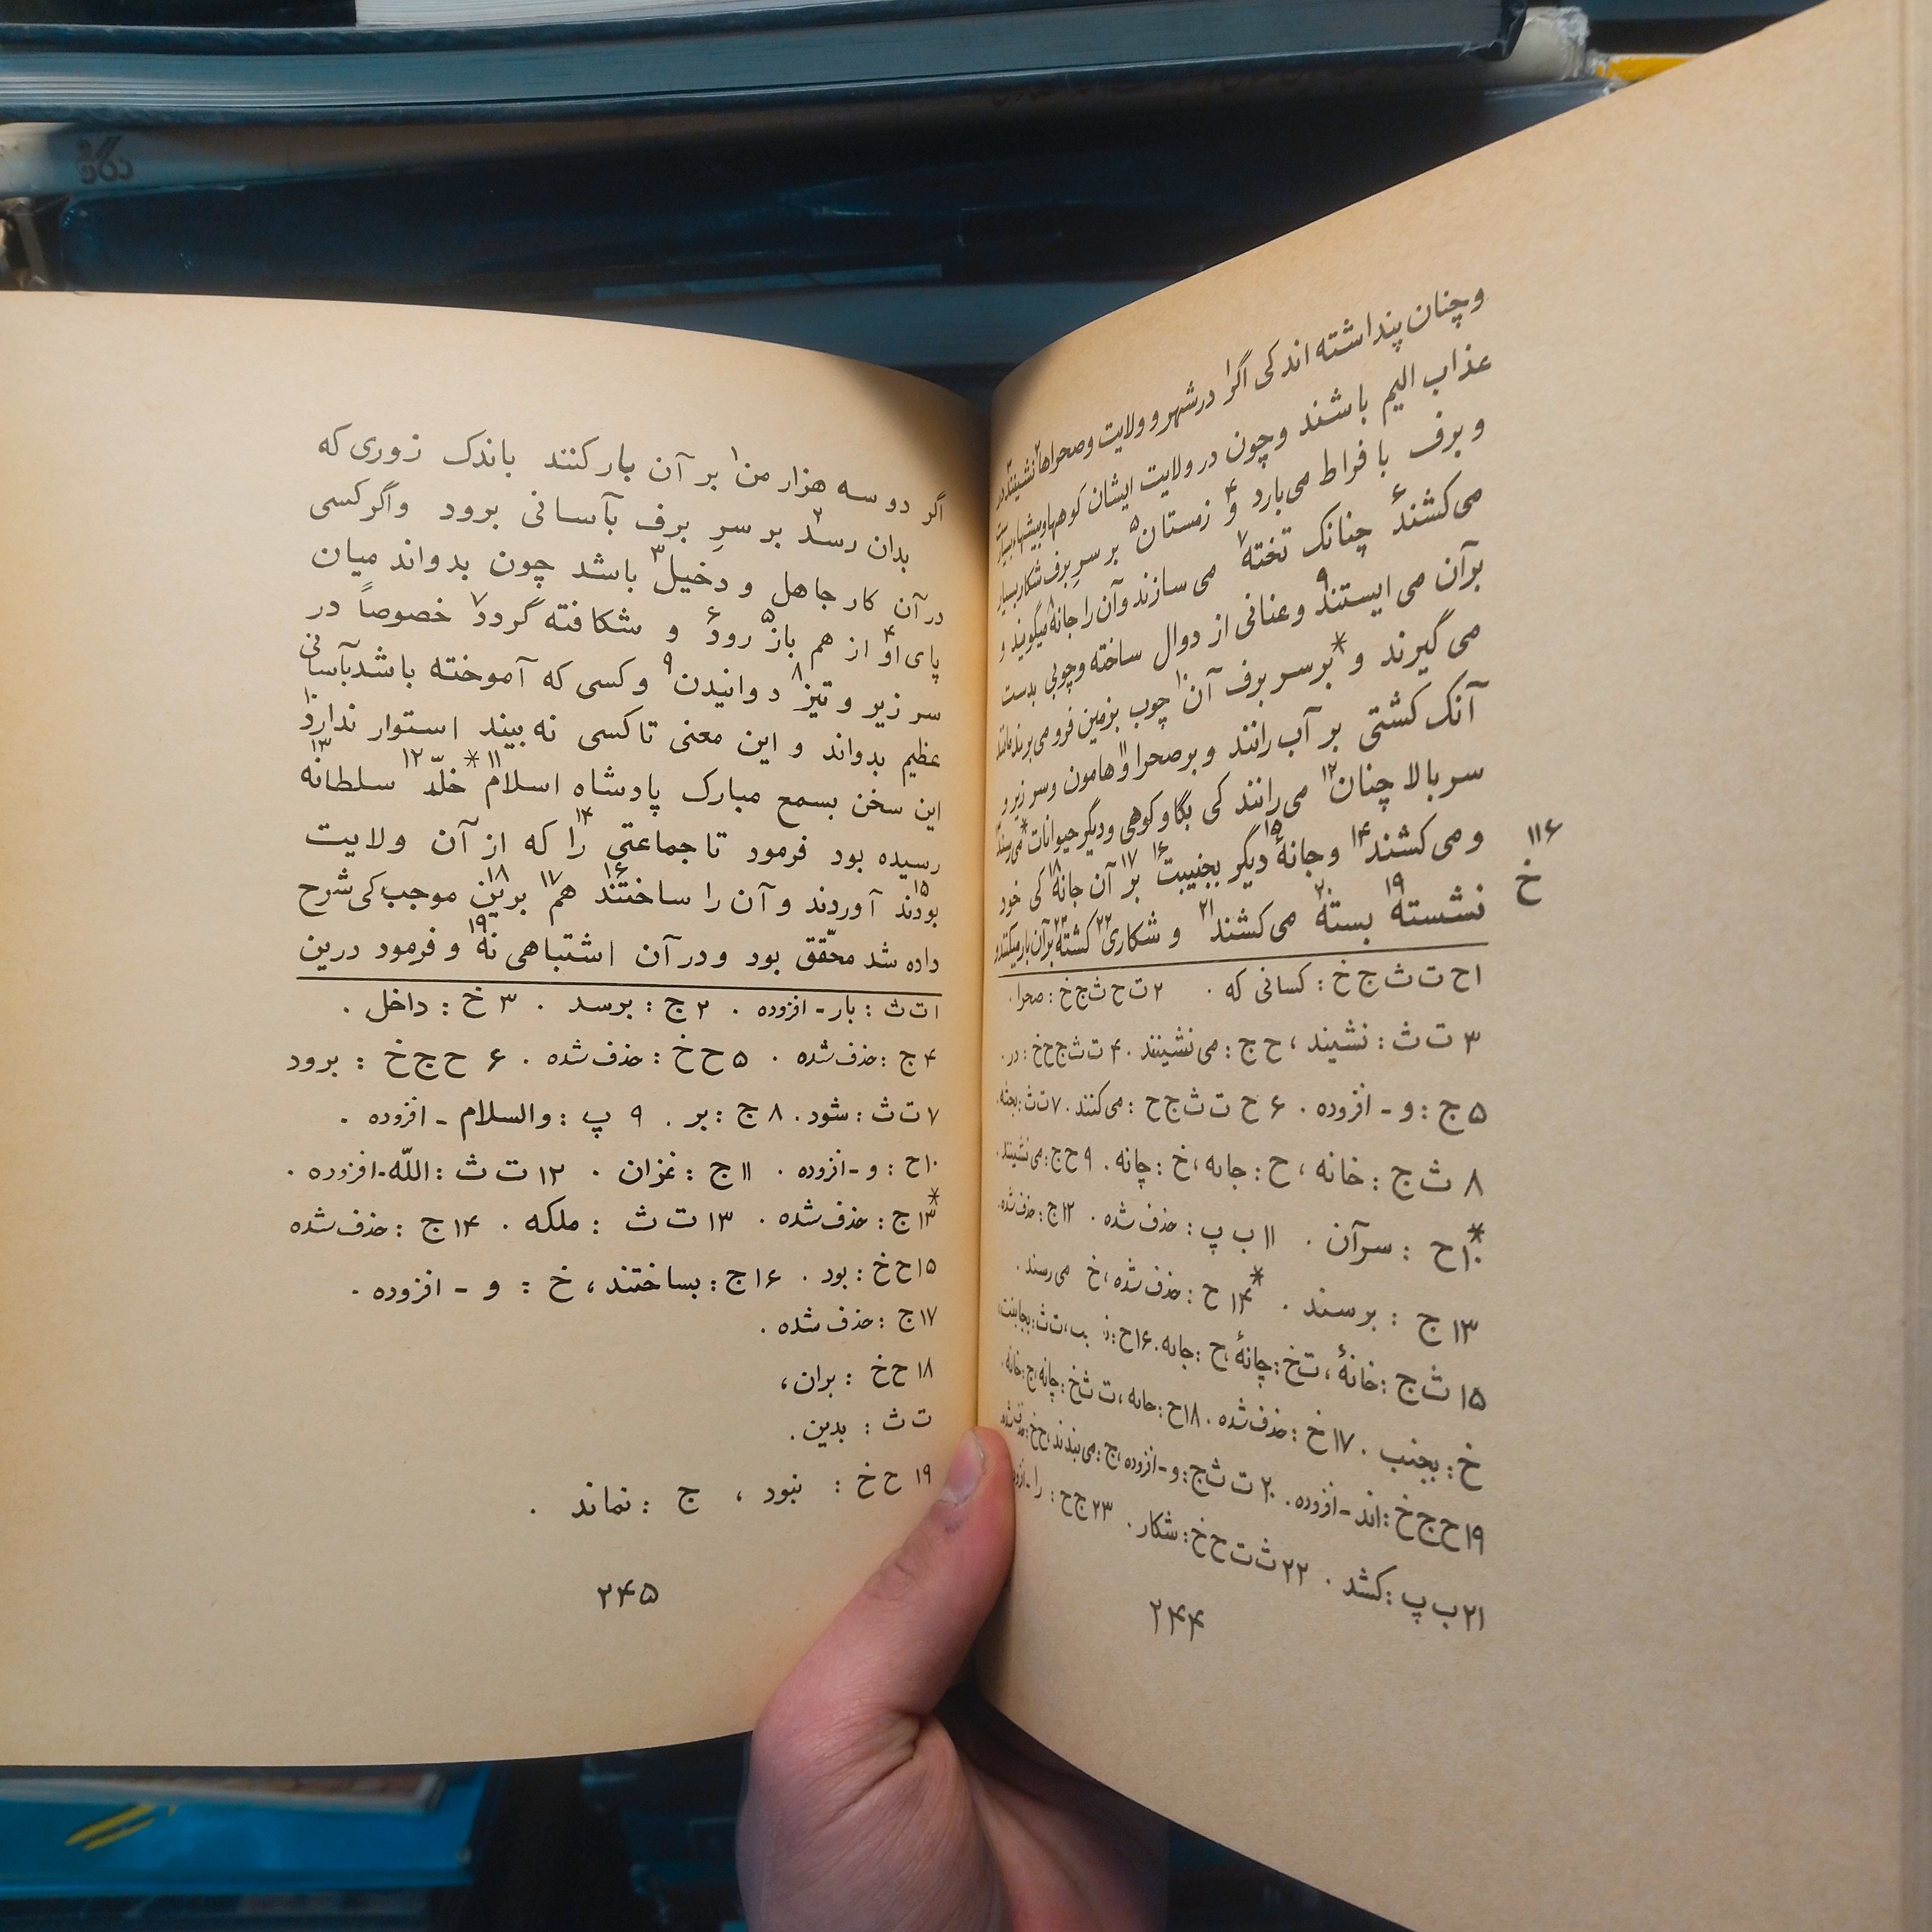 وچنان پنداشته اند کی اگر۱ درشهر و ولایت وصحراها۲ نشینند۳ در
عذاب الیم باشند وچون در ولایت ایشان کوهها وبیشها بسیارست
و برف با فراط می‌بارد و۴ زمستان۵ بر سرِ برف شکار بسیار
می‌کشند۶ چنانک تخته۷ می سازند وآن را جانه۸ میگویند و
برآن می ایستند۹ وعنانی از دوال ساخته وچوبی بدست
می گیرند و *برسر برف آن۱۰ چوب بزمین فرو می‌برند مانند
آنک کشتی بر آب رانند و برصحرا و۱۱ هامون وسر زیر و
سربالا چنان۱۲ می‌رانند کی بگاوکوهی ودیگر حیوانات *می‌رسند
ومی‌کشند۱۴ وجانهٔ۱۵ دیگر بجنیبت۱۶ بر۱۷ آن جانه۱۸ کی خود
نشسته۱۹ بسته۲۰ می‌کشند۲۱ و شکاری۲۲ کشته۲۳ برآن بارمیکنند و
۱۱۶
خ
۱ح ت ث ج خ : کسانی که . ۲ ت ح ث ج خ : صحرا.
۳ ت ث : نشیند ، ح ج : می نشینند . ۴ ت ث ج ح خ : در.
۵ ج : و - افزوده . ۶ ح ت ث ج ح : می‌کنند . ۷ ت ث : بجنه.
۸ ث ج : خانه ، ح : جابه ، خ : چانه. ۹ ح ج : می نشینند.
*۱۰ح : سرآن . ۱۱ ب پ : حذف شده . ۱۲ ج : حذف شده.
۱۳ ج : برسند . *۱۴ ح : حذف شده ، خ می رسند .
۱۵ ث ج : خانهٔ ، ت خ : چانهٔ ، ح : جابه. ۱۶ح : ب ، ت ث : بجابنت،
خ : بجنب . ۱۷ خ : حذف شده . ۱۸ح : حابه ، ت ث خ : چانه ، ج : خانه.
۱۹ ح ج خ : اند - افزوده. ۲۰ ت ث ج : و - افزوده ، ج : می بندند ، ح خ : حذف شده
۲۱ ب پ : کشد . ۲۲ ث ت ح خ : شکار . ۲۳ ج ح : را - افزوده
۲۴۴
اگر دو سه هزار من۱ بر آن بارکنند باندک زوری که
بدان رسد۲ بر سرِ برف بآسانی برود واگر کسی
در آن کار جاهل و دخیل۳ باشد چون بدواند میان
پای او۴ از هم باز۵ رود۶ و شکافته گردد۷ خصوصاً در
سر زیر و تیز۸ دوانیدن۹ وکسی که آموخته باشد بآسانی
عظیم بدواند و این معنی تاکسی نه بیند استوار ندارد۱۰
این سخن بسمع مبارک پادشاه اسلام۱۱ *خلّد۱۲ سلطانه۱۳
رسیده بود فرمود تا جماعتی۱۴ را که از آن ولایت
بودند۱۵ آوردند و آن را ساختند۱۶ هم۱۷ برین۱۸ موجب کی شرح
داده شد محقّق بود ودر آن اشتباهی نه۱۹ و فرمود درین
۱ت ث : بار - افزوده . ۲ ج : برسد . ۳ خ : داخل .
۴ ج : حذف شده . ۵ ح خ : حذف شده . ۶ ح ج خ : برود
۷ ت ث : شود. ۸ ج : بر . ۹ پ : والسلام - افزوده .
۱۰ح : و - افزوده . ۱۱ ج : غزان . ۱۲ ت ث : اللّه - افزوده .
*۱۳ ج : حذف شده . ۱۳ ت ث : ملکه . ۱۴ ج : حذف شده
۱۵ ح خ : بود . ۱۶ ج : بساختند ، خ : و - افزوده .
۱۷ ج : حذف شده .
۱۸ ح خ : بران ،
ت ث : بدین .
۱۹ ح خ : نبود ، ج : نماند .
۲۴۵